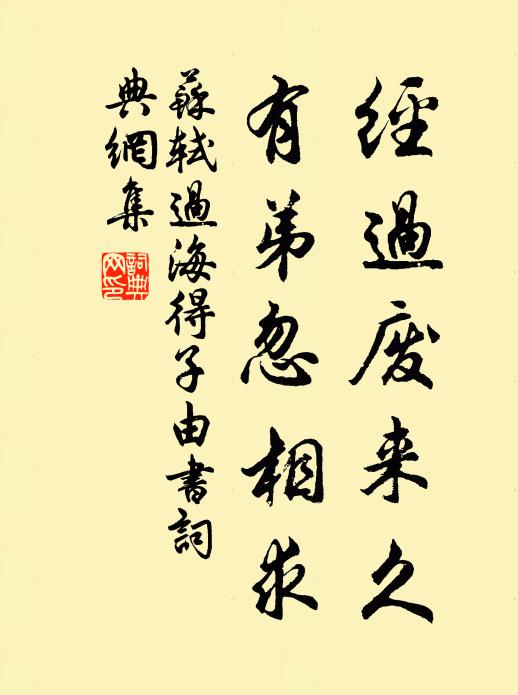 經過废来久
有弟忽相求
蘇軾過海得子由書詞
典網集
詞典網印